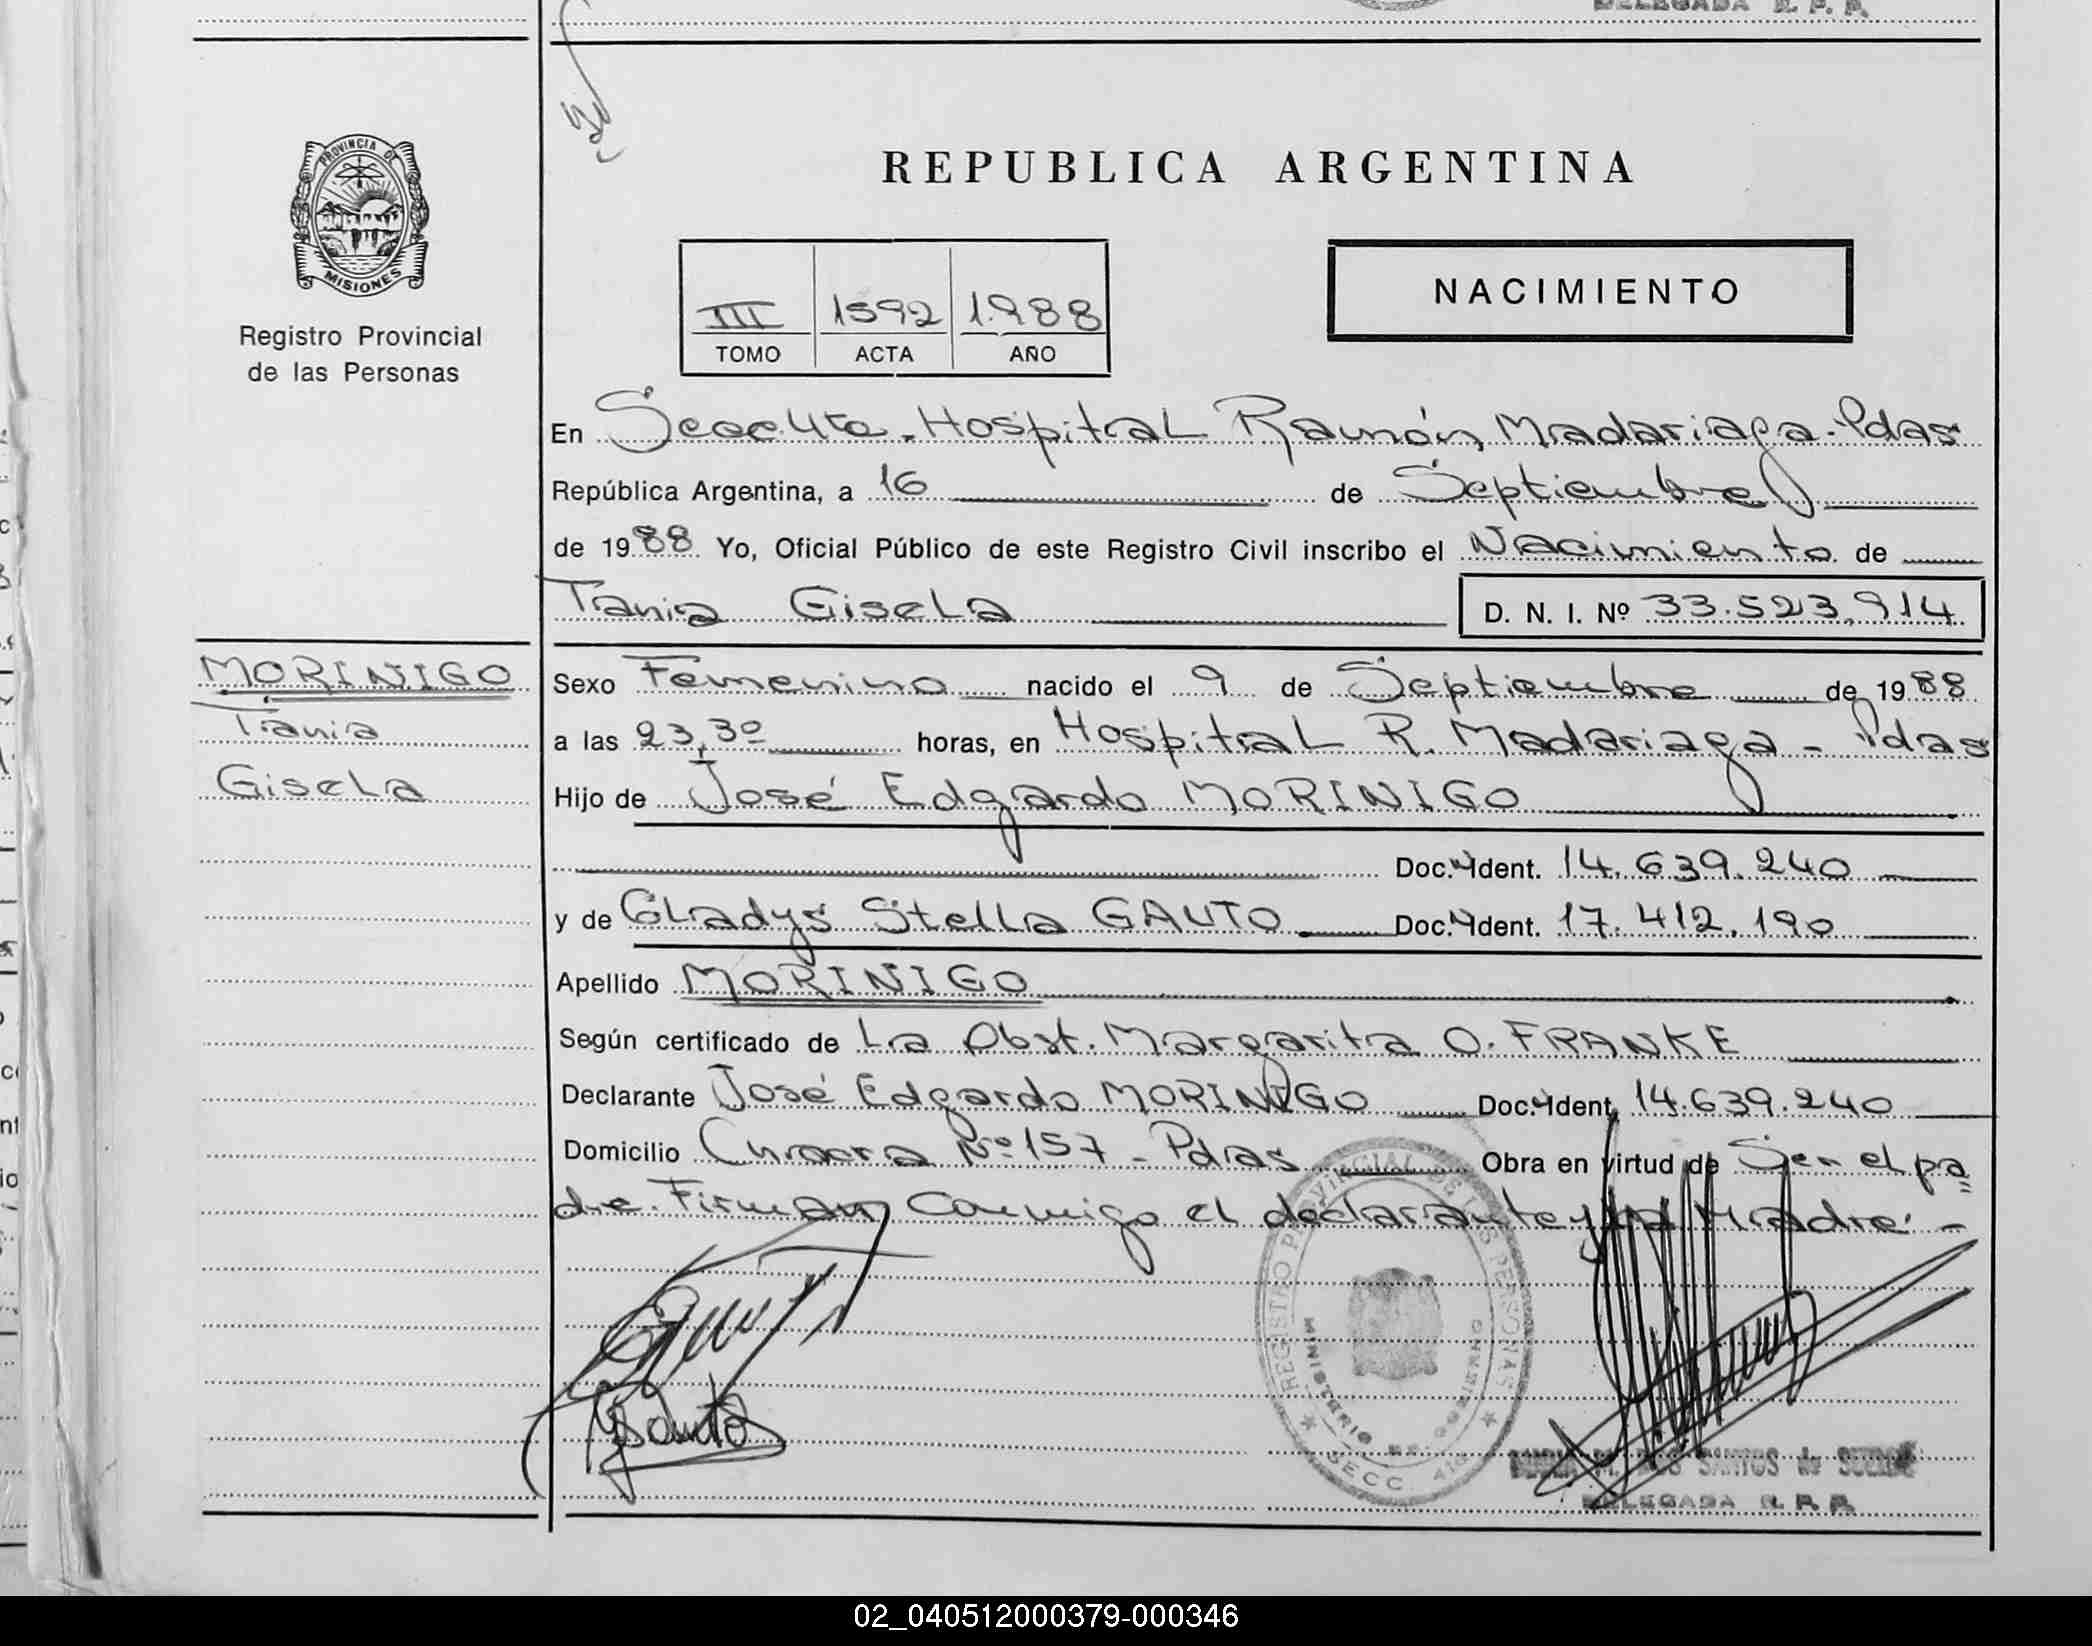 DELEGADA R. P. P.
PROVINCIA DE
MISIONES
Registro Provincial
de las Personas
REPUBLICA ARGENTINA
NACIMIENTO
III 1592 1.988
TOMO ACTA AÑO
En Secc. 4ta. Hospital Ramón Madariaga - Pdas
República Argentina, a 16 de Septiembre
de 1988 Yo, Oficial Público de este Registro Civil inscribo el Nacimiento de
Tania Gisela D. N. I. Nº 33.523.914
MORINIGO
Tania
Gisela
Sexo Femenino nacido el 9 de Septiembre de 1988
a las 23,30 horas, en Hospital R. Madariaga - Pdas
Hijo de José Edgardo MORINIGO
Doc. Ident. 14.639.240
y de Gladys Stella GAUTO Doc. Ident. 17.412.190
Apellido MORINIGO
Según certificado de La Obst. Margarita O. FRANKE
Declarante José Edgardo MORINIGO Doc. Ident. 14.639.240
Domicilio Nº 157 - Pdas Obra en virtud de Ser el pa
dre. Firman Conmigo el declarante y la Madre. -
REGISTRO PROVINCIAL DE LAS PERSONAS
MINISTERIO DE GOBIERNO
SECC. 4ta
GGauto
M. DOS SANTOS de
DELEGADA R. P. P.
02_040512000379-000346